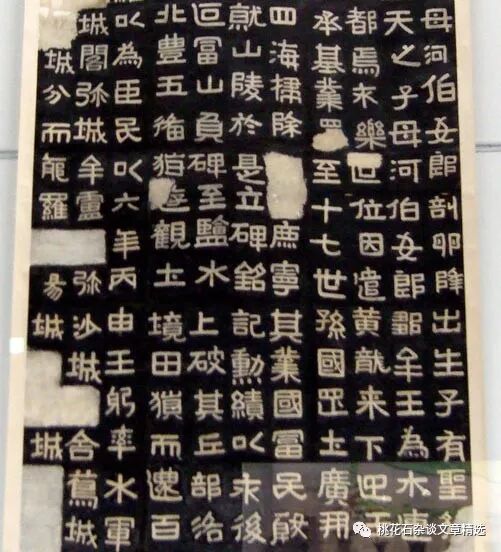 母河伯女郎剖卵降出生子有聖
天之子母河伯女郎鄒牟王為木
都焉不樂世位因遣黄龍来下迎王
承基業至十七世孫國罡上廣開
四海掃除庶寧其業國富民殷
就山陵於是立碑銘記勳績以永後
叵富山負碑至鹽水上破其丘部洛
北豊五備猶遊觀土境田獵而還百
以為臣民以六年丙申王躬率水軍
城閣弥城牟盧弥沙城舍蔦城
城分而能羅昜城城
桃花石杂谈文章精选